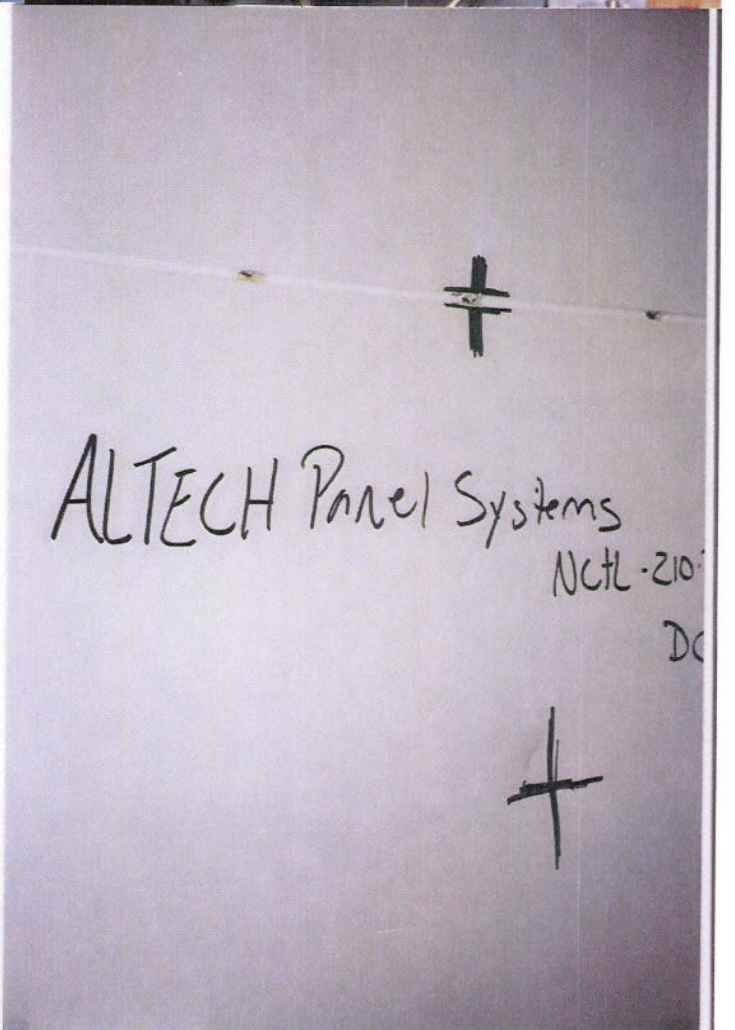 ALTECH Panel Systems
NCTL-210-